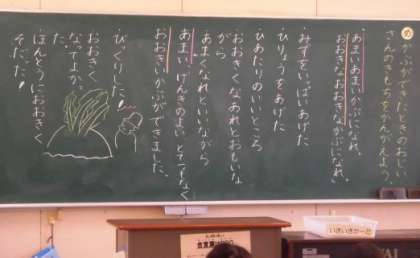 かぶができたときのおじい
さんのきもちをかんがえよう。
あまいあまいかぶになれ。
おおきなおおきなかぶになれ。
・みずをいっぱいあげた
・ひりょうをあげた
ひあたりのいいところ
・おおきくなあれとおもいな
がら
あまくなれといいながら
あまい、げんきのよい、とてつもなく
おおきいかぶができました。
びっくりした!
おおきく
なってよかっ
た。
ほんとうにおおきく
そだった!
いきいきかーど